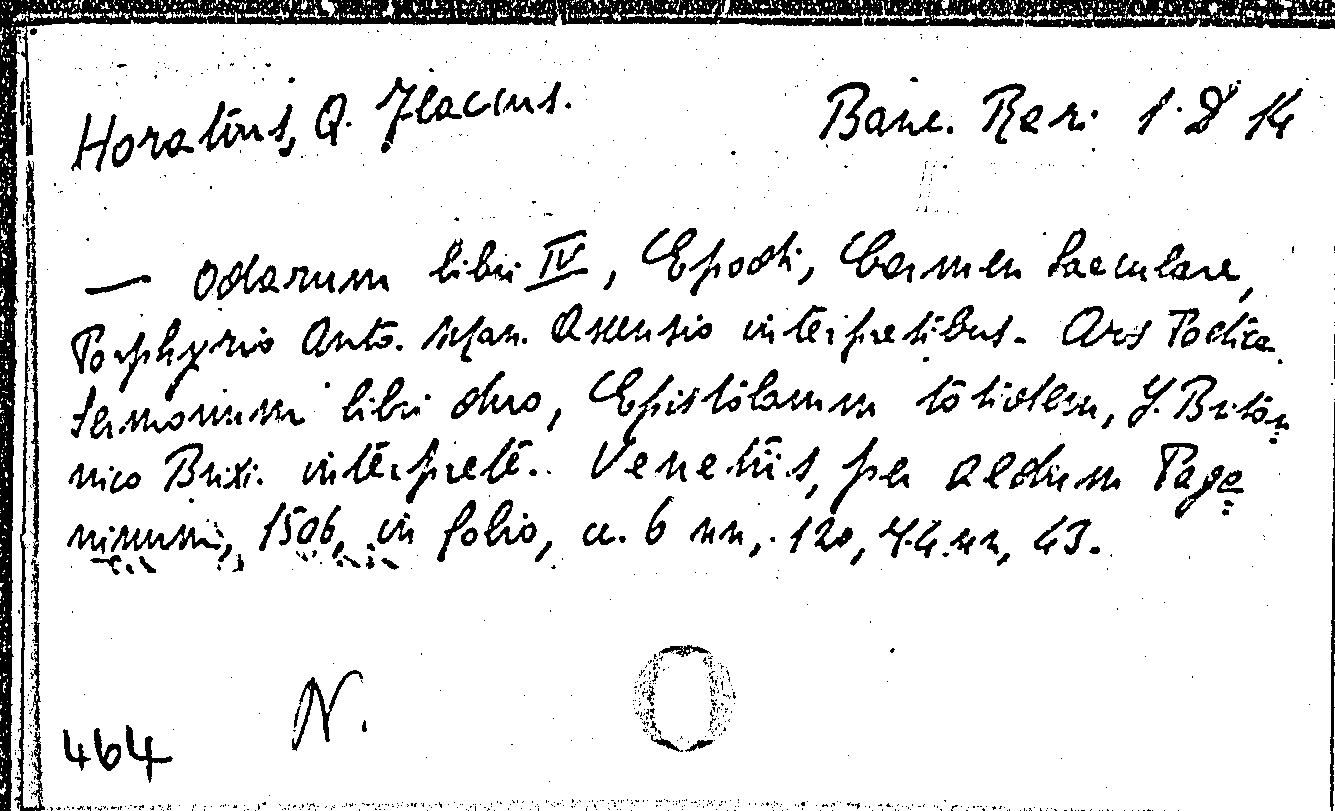 Horatius, Q. Flaccus. Banc. Rar. 1. D 14
— Odarum libri IV, Epodi, Carmen Saeculare,
Porphyrio Anto. Man. Ascensio interpretibus. Ars Poetica
Sermonum libri duo, Epistolarum totidem, J. Britan
nico Brixi. interprete. Venetiis, per Aldum Paga
ninum, 1506, in folio, cc. 6 nn, 120, 4 nn, 43.
N.
464